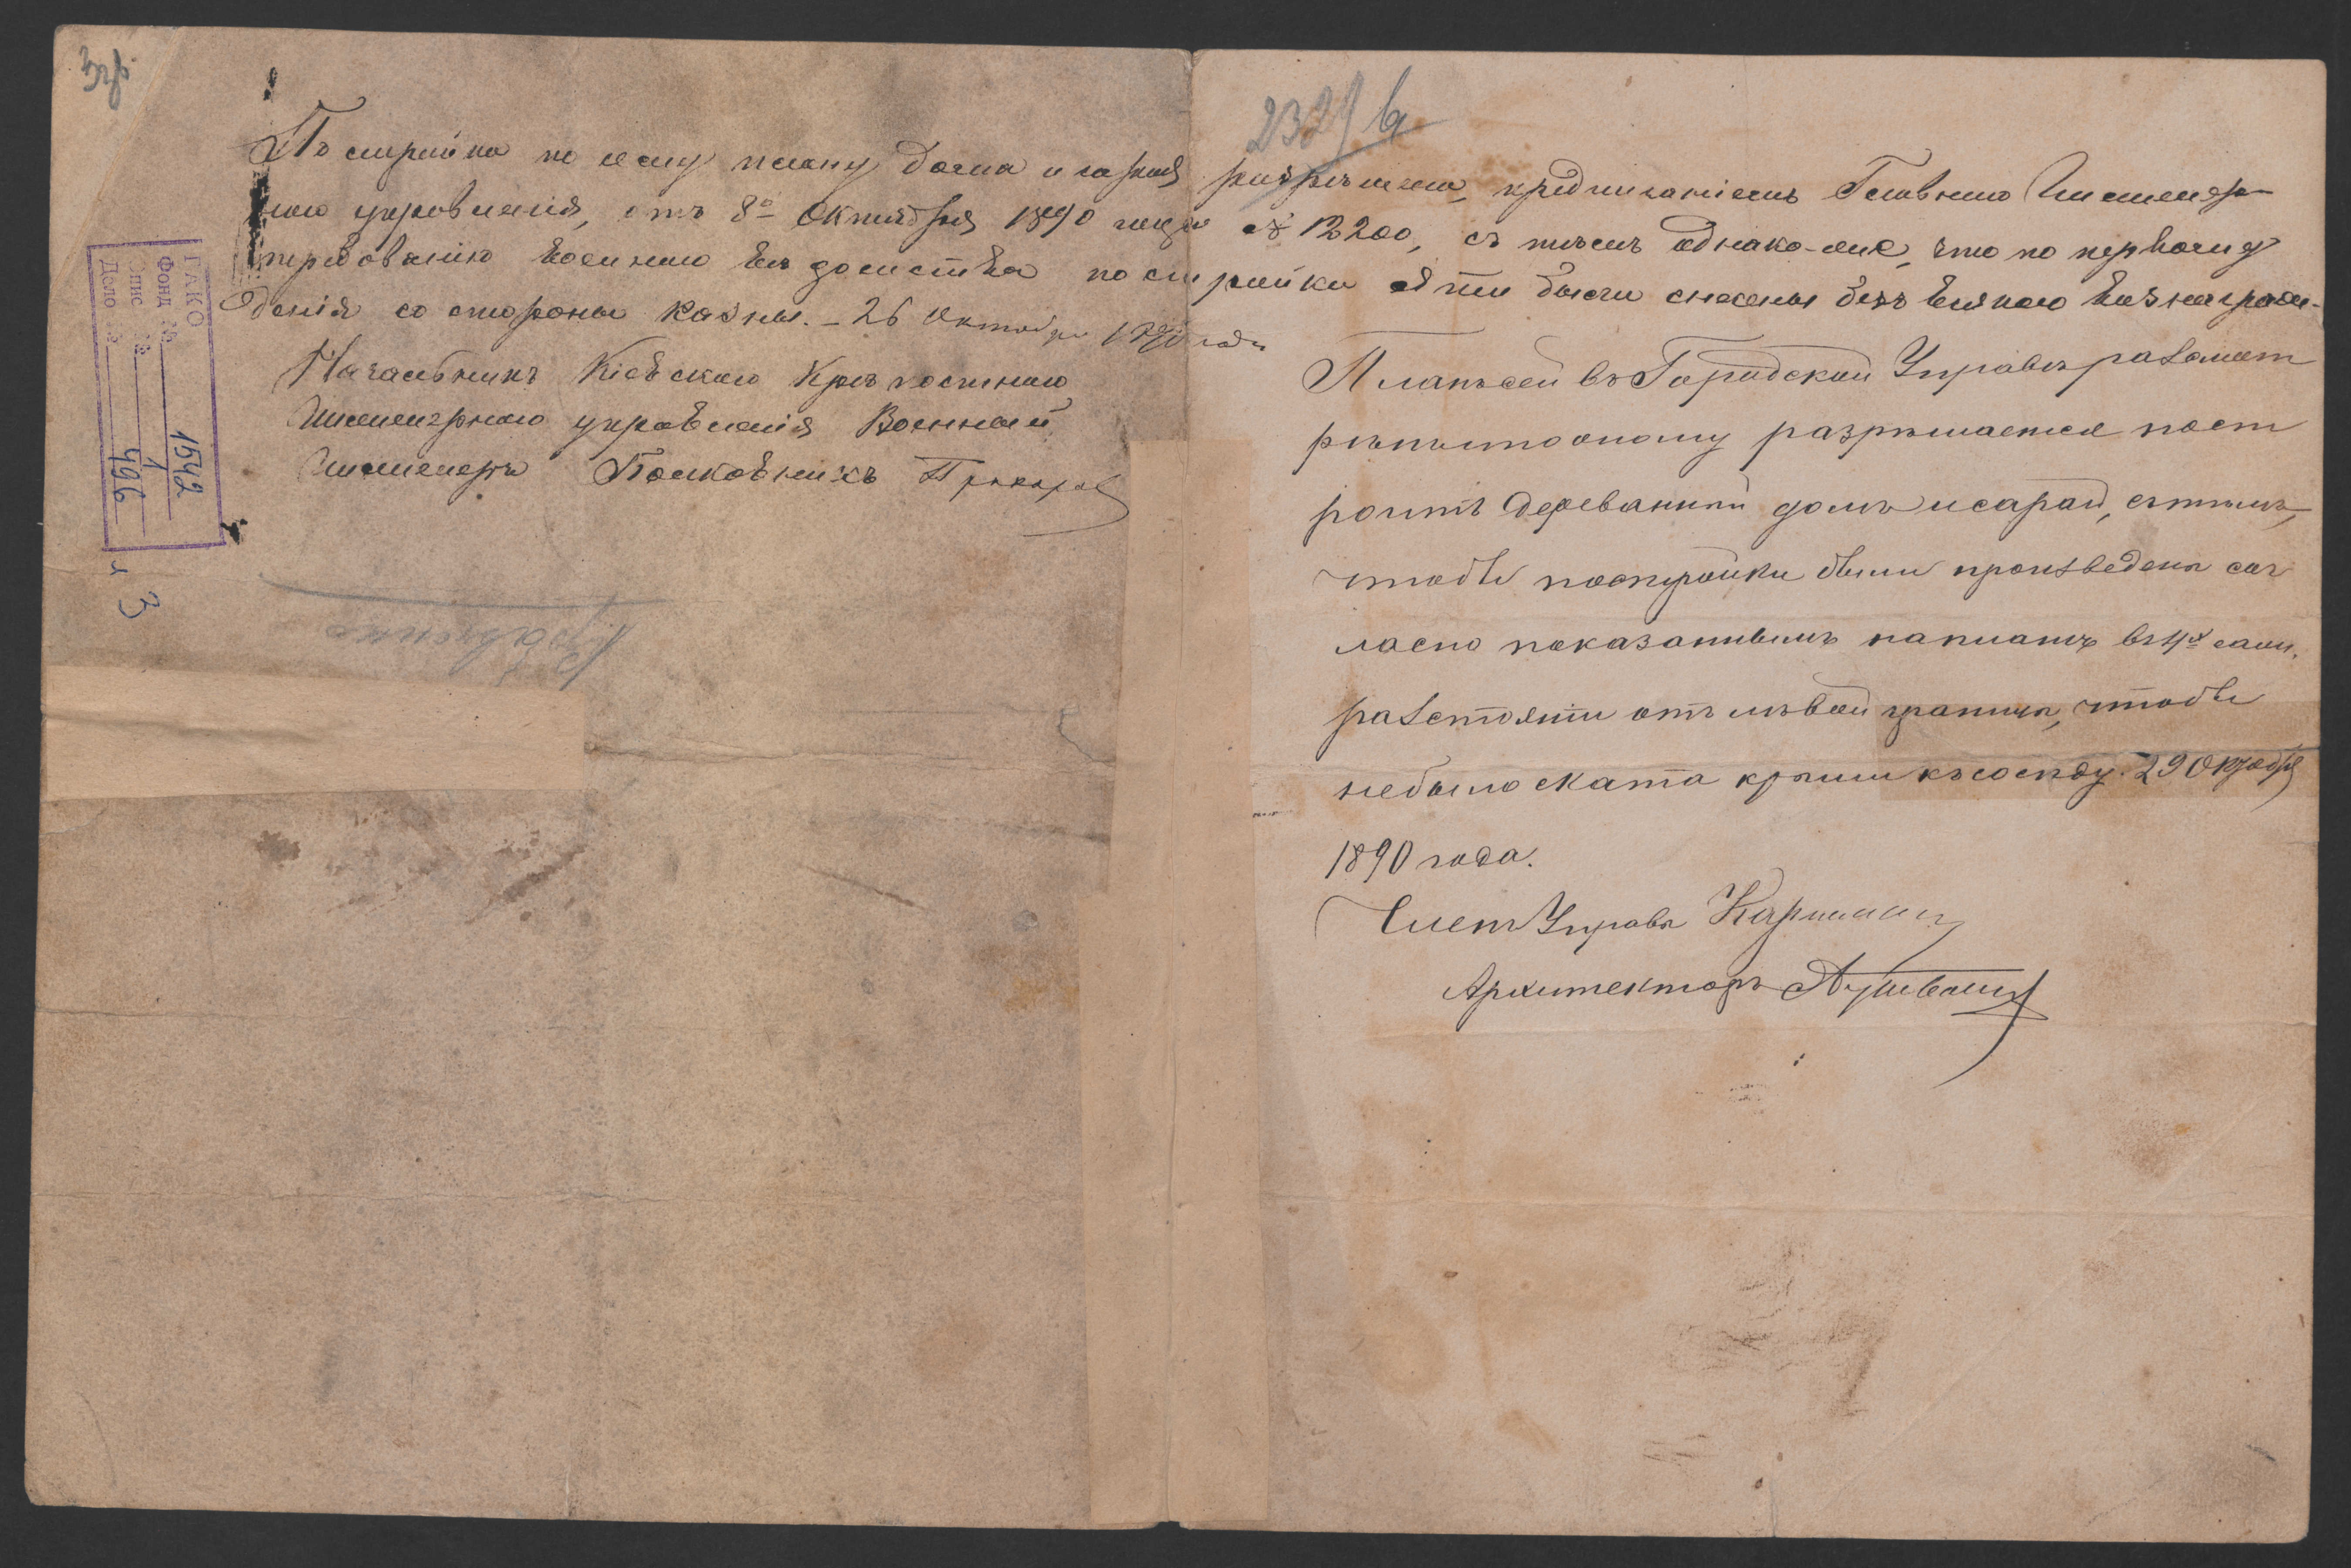 2329 b
Постройка по сему плану дома и сарая разрѣшена, предписаніемъ Главнаго Инженер-
наго управленія, отъ 8го Октября 1890 года № 12200, съ тѣмъ однако-же, что по первому
требованію военнаго вѣдомства постройки эти были снесены безъ всякаго вознаграж-
денія со стороны казны. - 26 Октября 1890 года
Начальникъ Кіевскаго Крѣпостнаго
Инженернаго управленія Военный
Инженеръ Полковникъ
Кравченко
ГАКО
Фонд № 1542
Опис № 1
Дело № 496
л 3
Планъ сей въ Городской Управѣ разсмат
рѣнъ и по оному разрѣшается пост
роить деревянный домъ и сарай, съ тѣмъ,
чтобы постройки были произведены сог
ласно показаннымъ на планѣ въ 4х саж.
разстояніи отъ лѣвой границы, чтобы
небыло ската крыши къ сосѣду. 29 Октября
1890 года.
Членъ Управы
Архитекторъ